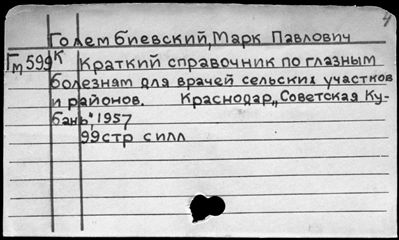 4
Голембиевский, Марк Павлович
Гм599к Краткий справочник по глазным
болезням для врачей сельских участков
и районов. Краснодар „Советская Ку-
бань" 1957
99стр с илл